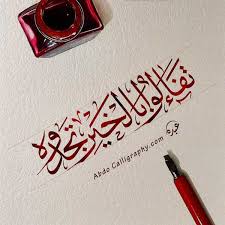 تفاءلوا بالخير تجدوه
عبده
Abdo Calligraphy.com